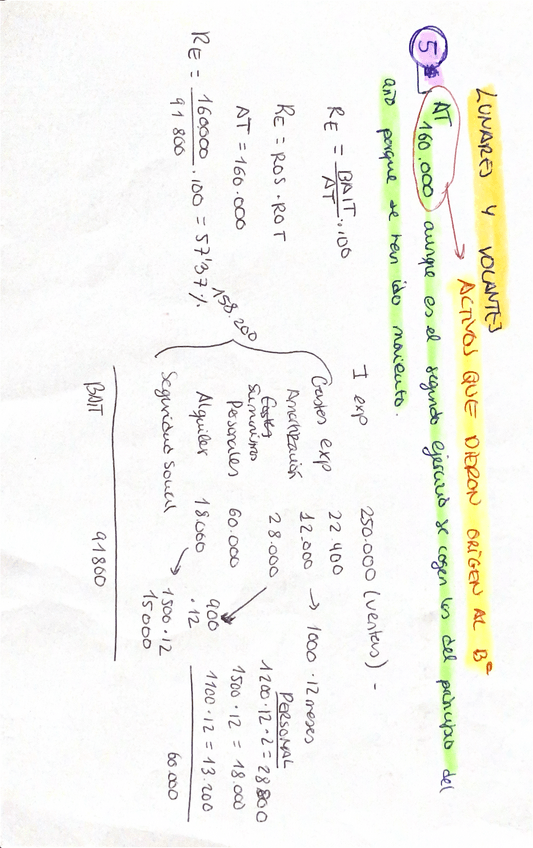 LUNARES Y VOLANTES
ACTIVOS QUE DIERON ORIGEN AL Bº
5
AT 160.000 aunque es el segundo ejercicio se cogen los del principio del
año porque se han ido moviendo.
RE = BAIT / AT · 100
RE = ROS · ROT
AT = 160.000
RE = 160000 / 91800 · 100 = 57'37%
I exp 250.000 (ventas) -
Gastos exp 22.400
Amortización 12.000 → 1000 · 12 meses
Gastos suministro 28.000
Personales 60.000
Alquiler 18.000 900 · 12
Seguridad Social → 1500 · 12
15000
158.200
BAIT 91800
PERSONAL
1200 · 12 · 2 = 28800
1500 · 12 = 18.000
1100 · 12 = 13.200
60.000